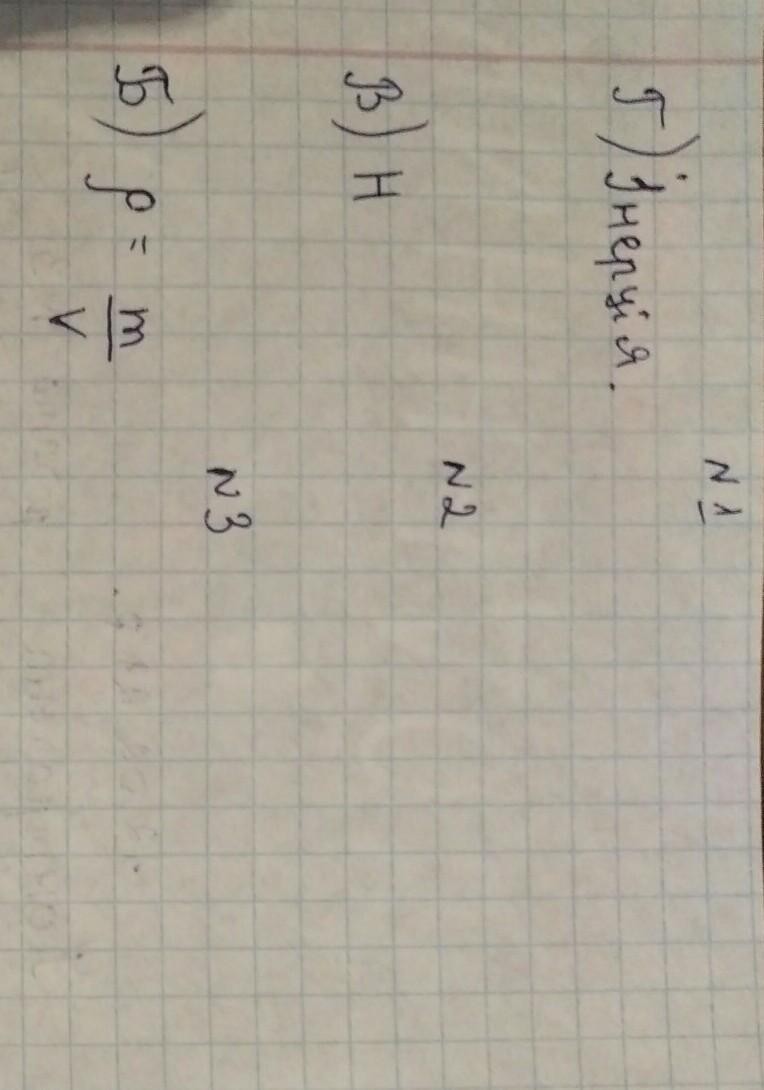 N 1
Г) Інерція.
N 2
В) Н
N 3
Б) ρ = m/V